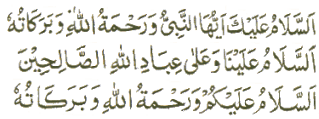 اَلسَّلَامُ عَلَيْكَ اَيُّهَا النَّبِيُّ وَرَحْمَةُ اللهِ وَبَرَكَاتُهُ
اَلسَّلَامُ عَلَيْنَا وَعَلٰى عِبَادِ اللهِ الصَّالِحِيْنَ
اَلسَّلَامُ عَلَيْكُمْ وَرَحْمَةُ اللهِ وَبَرَكَاتُهُ